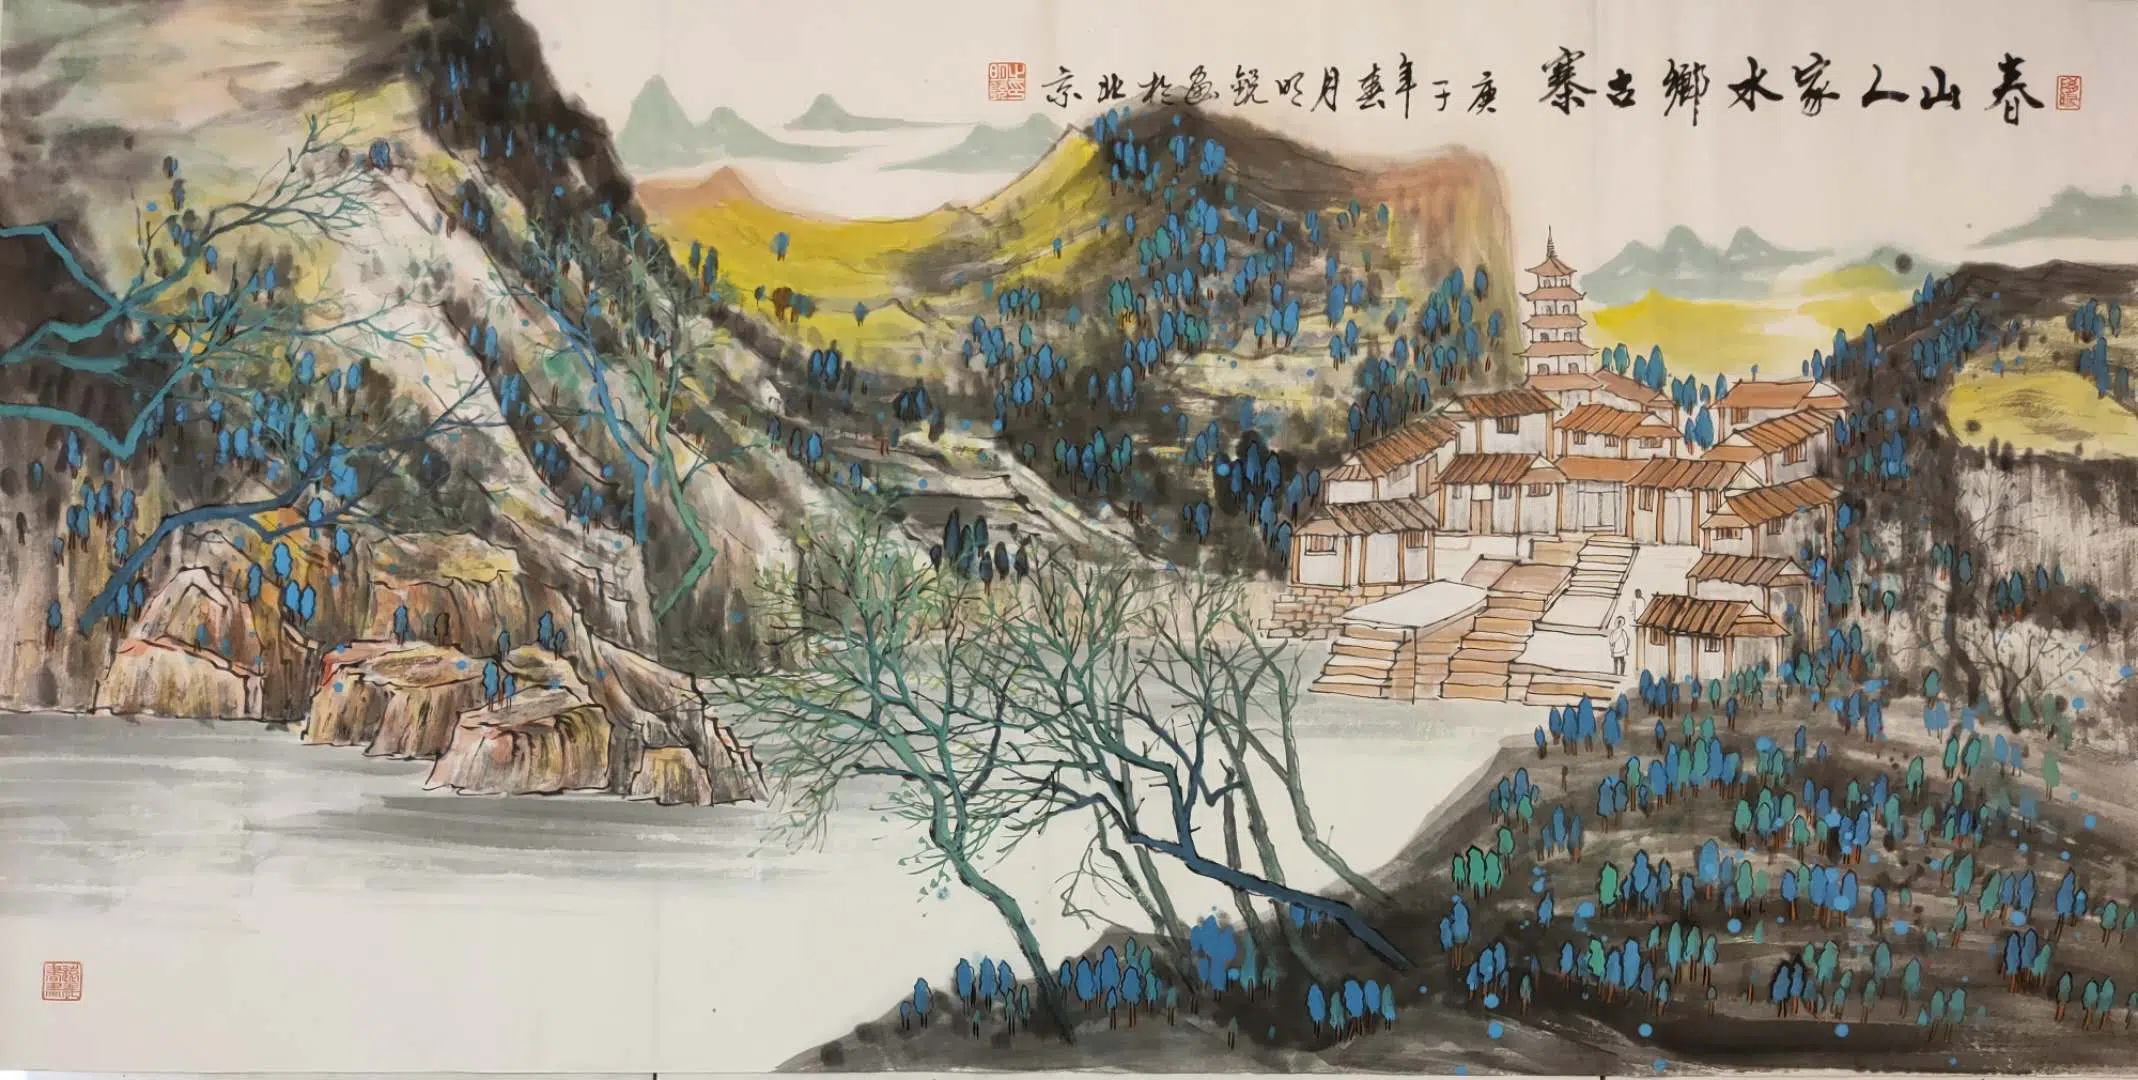 春山人家水鄉古寨 庚子年春月明锐画於北京